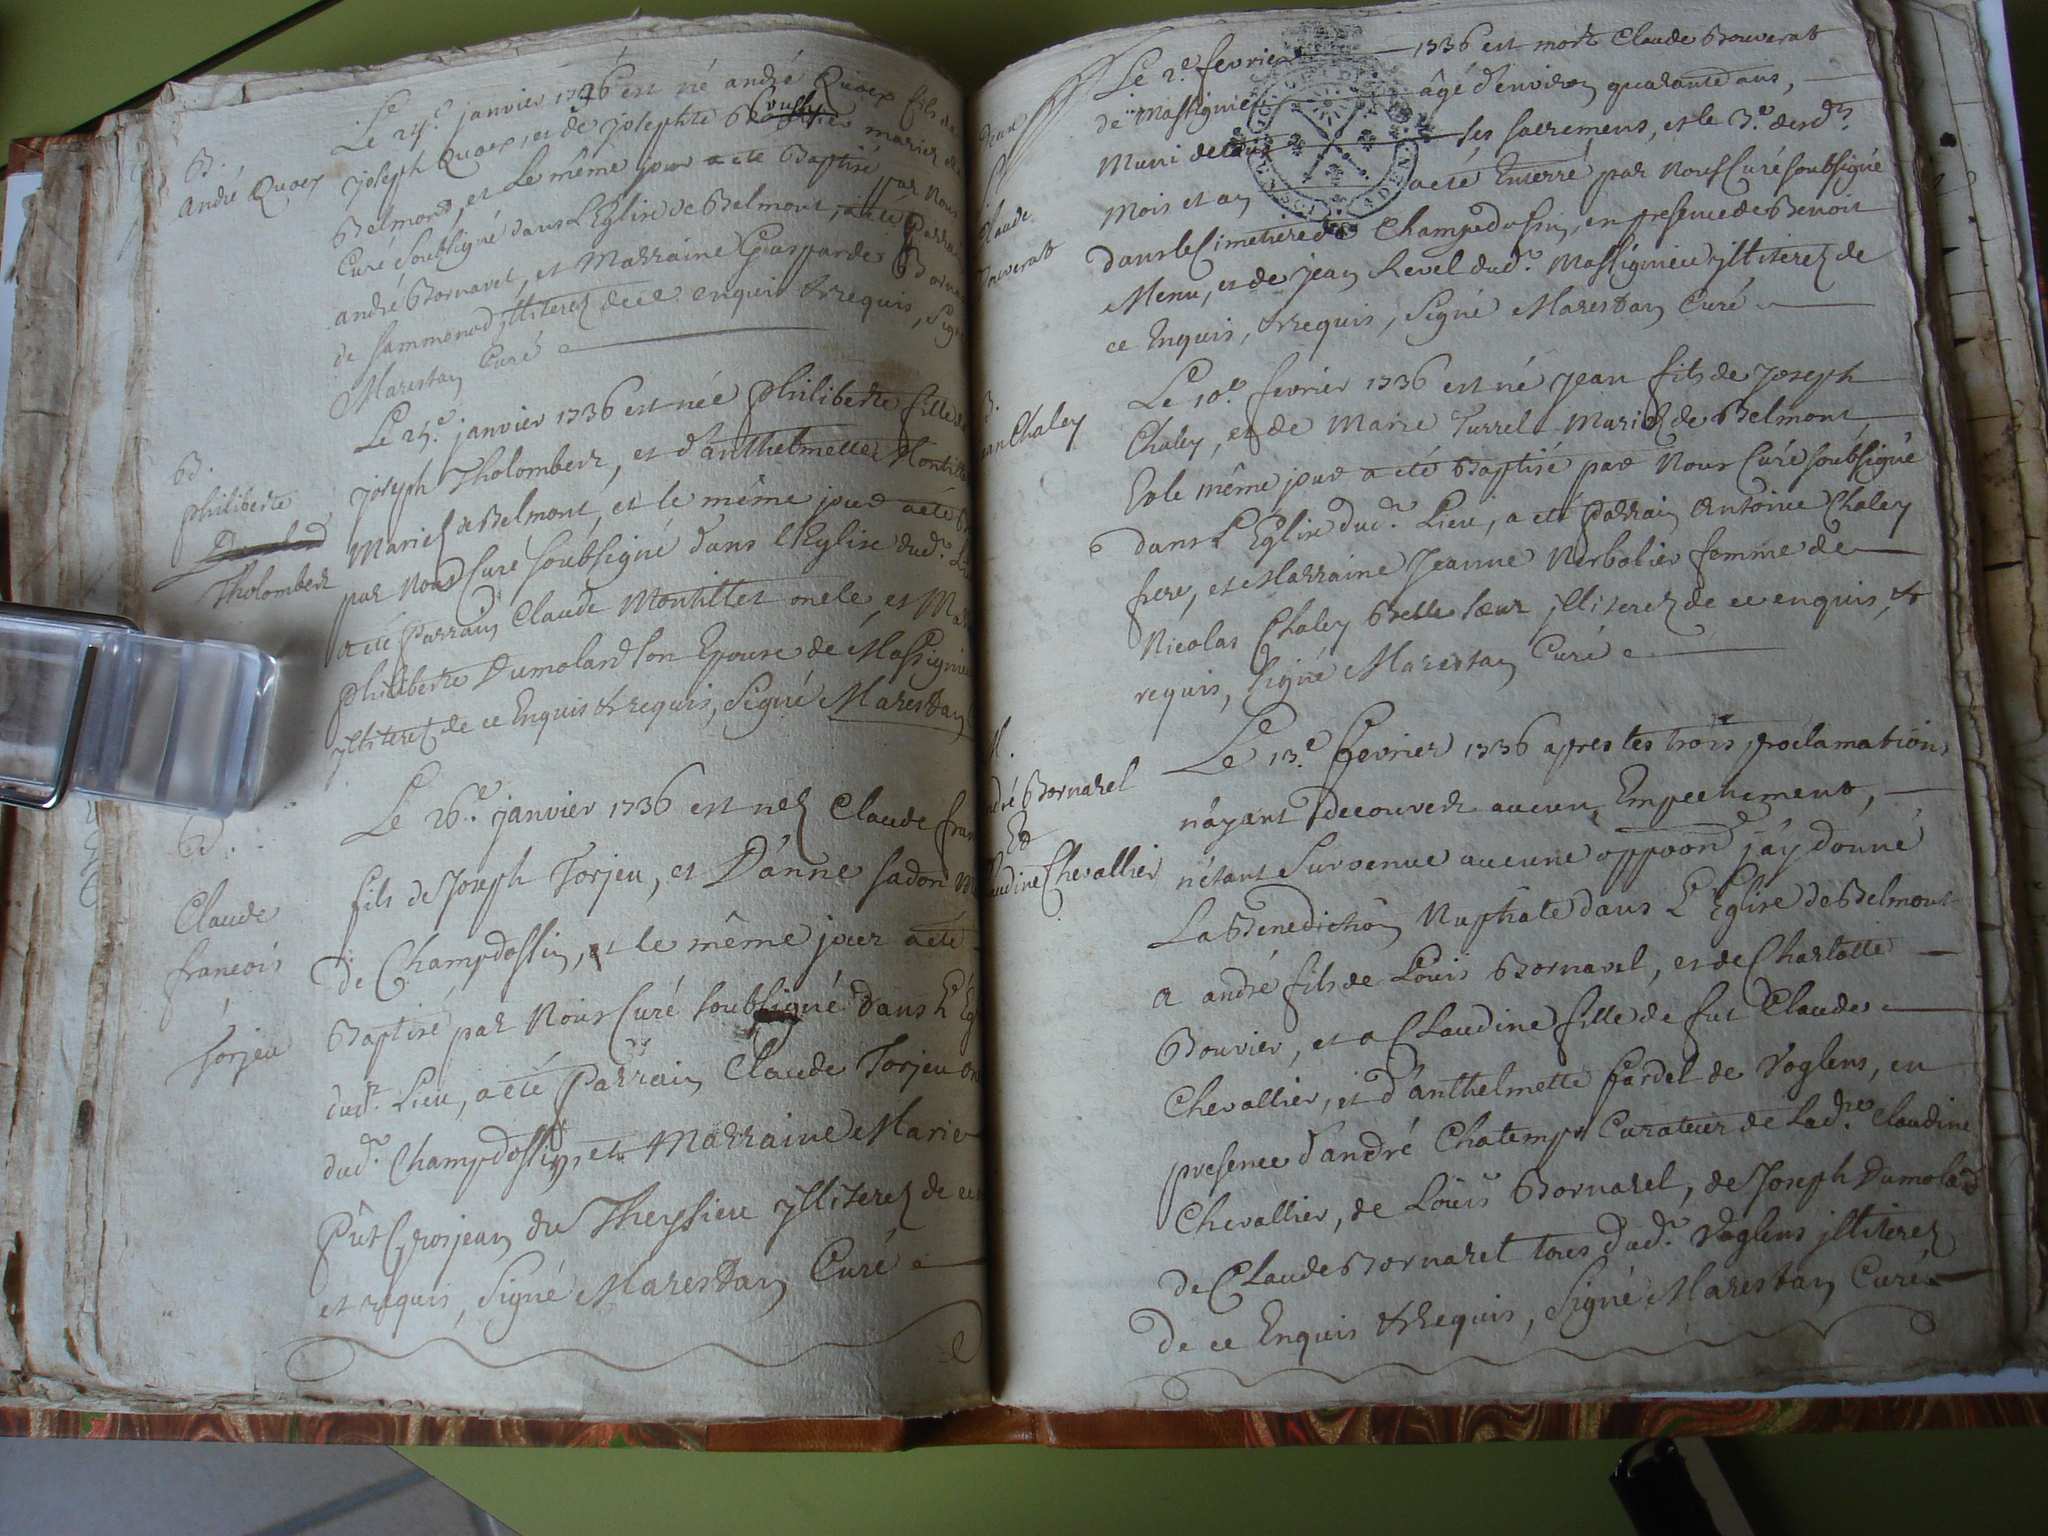 B.
André Quoex
Le 24e. janvier 1736 est né andré Quoex fils de
joseph Quoex, et de josephte mariez de
Belmond, et Le même jour a eté Baptisé par Nous
Curé soubsigné dans L'Eglise de Belmont, a eté Parrain
andré Bornarel, et Marraine Gasparde
de sammonod ylliterez de ce enquis & requis, signé
Marestan Curé
B.
philiberte
Tholomber
Le 25e. janvier 1736 est née philiberte fille de
joseph Tholomber, et d'anthelmette
Mariez de Belmont, et le même jour a eté
par Nous Curé soubsigné dans l'Eglise dud.
a eté Parrain Claude Montillet oncle et
philiberte Dumolard son Epouse de Massignieu
ylliterez de ce Enquis & requis, signé Marestan
B.
Claude
francois
Torjeu
Le 26e. janvier 1736 est nez Claude
fils de Joseph Torjeu, et D'anne sadon
de Champdossin, et le même jour a eté
Baptisé par Nous Curé soubsigné dans L'
dud. Lieu, a eté Parrain Claude Torjeu
dud. Champdossin, et Marraine Marie
Grosjean du Theysieu ylliterez de ce
et requis, signé Marestan Curé
Claude
Bouverat
Le 2e. fevrier 1736 est mort Claude Bouverat
de Massignieu âgé d'environ quarante ans,
Muni de tous ses sacremens, et le 3e. desd.
Mois et an a eté Enterré par Nous Curé soubsigné
dans le Cimetiere de Champdossin, en presence de Benoit
Menu, et de jean Revel dud. Massignieu ylliterez de
ce Enquis, & requis, signé Marestan Curé
B.
Jean Chaley
Le 10e. fevrier 1736 est né jean fils de Joseph
Chaley, et de Marie Turrel Mariez de Belmont,
Et le même jour a eté Baptisé par Nous Curé soubsigné
dans L'Eglise dud. Lieu, a eté Parrain Antoine Chaley
frere, et Marraine Jeanne Verbolier femme de
Nicolas Chaley Belle sœur ylliterez de ce enquis, &
requis, signé Marestan Curé
M.
andré Bornarel
Et
Claudine Chevallier
Le 13e. fevrier 1736 apres les trois proclamations
n'ayant decouvert aucun Empechement,
n'étant survenue aucune oppoon j'ay donné
La Benediction Nuptiale dans L'Eglise de Belmont
a andré fils de Louis Bornarel, et de Charlotte
Bouvier, et a Claudine fille de fut Claude
Chevallier, et d'anthelmette fardel de Voglens, en
presence d'andré Chatemps Curateur de Lad. Claudine
Chevallier, de Louis Bornarel, de Joseph Dumolard
de Claude Bornarel tous dud. Voglens ylliterez
de ce Enquis & Requis, signé Marestan Curé